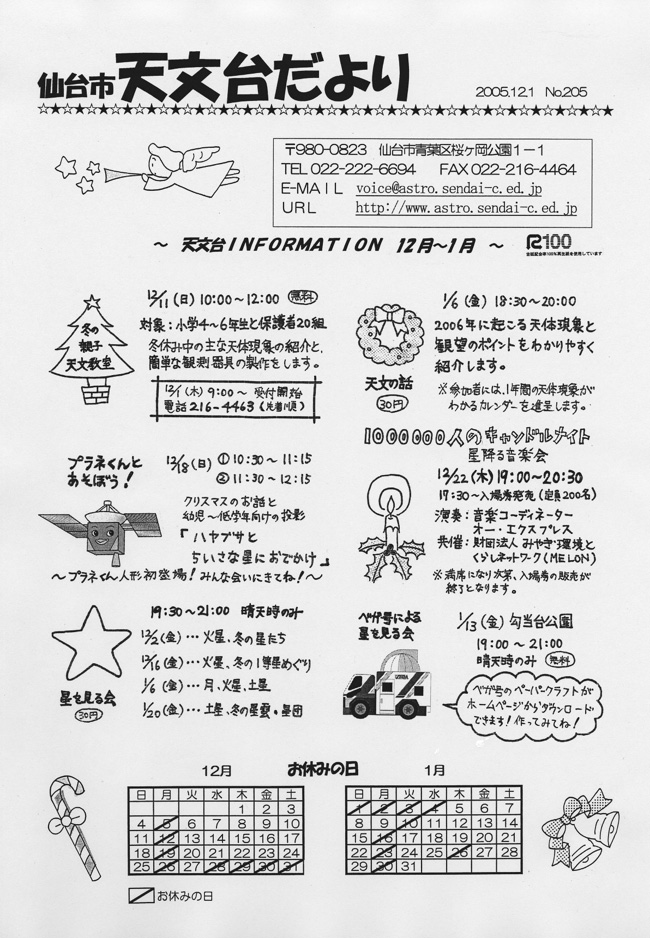 仙台市 天文台だより 2005.12.1 No.205
☆★☆★☆★☆★☆★☆★☆★☆★☆★☆★☆★☆★☆★☆★☆★☆★☆★☆★
〒980-0823 仙台市青葉区桜ヶ岡公園1-1
TEL 022-222-6694 FAX 022-216-4464
E-MAIL voice@astro.sendai-c.ed.jp
URL http://www.astro.sendai-c.ed.jp
～ 天文台INFORMATION 12月～1月 ～
R100
古紙配合率100%再生紙を使用しています
冬の
親子
天文教室
12/11(日) 10:00～12:00 無料
対象：小学4～6年生と保護者20組
冬休み中の主な天体現象の紹介と、
簡単な観測器具の製作をします。
12/1(木) 9:00～ 受付開始
電話 216-4463 (先着順)
天文の話
30円
1/6(金) 18:30～20:00
2006年に起こる天体現象と
観望のポイントをわかりやすく
紹介します。
※参加者には、1年間の天体現象が
わかるカレンダーを進呈します。
プラネくんと
あそぼう!
12/18(日) ①10:30～11:15
②11:30～12:15
クリスマスのお話と
幼児～低学年向けの投影
「ハヤブサと
ちいさな星におでかけ」
～プラネくん人形初登場! みんな会いにきてね!～
1000000人のキャンドルナイト
星降る音楽会
12/22(木) 19:00～20:30
17:30～入場券発売(定員200名)
演奏：音楽コーディネーター
オー・エクスプレス
共催：財団法人 みやぎ・環境と
くらしネットワーク(MELON)
※満席になり次第、入場券の販売が
終了となります。
星を見る会
30円
19:30～21:00 晴天時のみ
12/2(金)…火星、冬の星たち
12/16(金)…火星、冬の1等星めぐり
1/6(金)…月、火星、土星
1/20(金)…土星、冬の星雲・星団
ベガ号による
星を見る会
1/13(金) 勾当台公園
19:00～21:00
晴天時のみ 無料
ベガ号のペーパークラフトが
ホームページからダウンロード
できます! 作ってみてね!
お休みの日
12月
日 月 火 水 木 金 土
1 2 3
4 5 6 7 8 9 10
11 12 13 14 15 16 17
18 19 20 21 22 23 24
25 26 27 28 29 30 31
1月
日 月 火 水 木 金 土
1 2 3 4 5 6 7
8 9 10 11 12 13 14
15 16 17 18 19 20 21
22 23 24 25 26 27 28
29 30 31
お休みの日